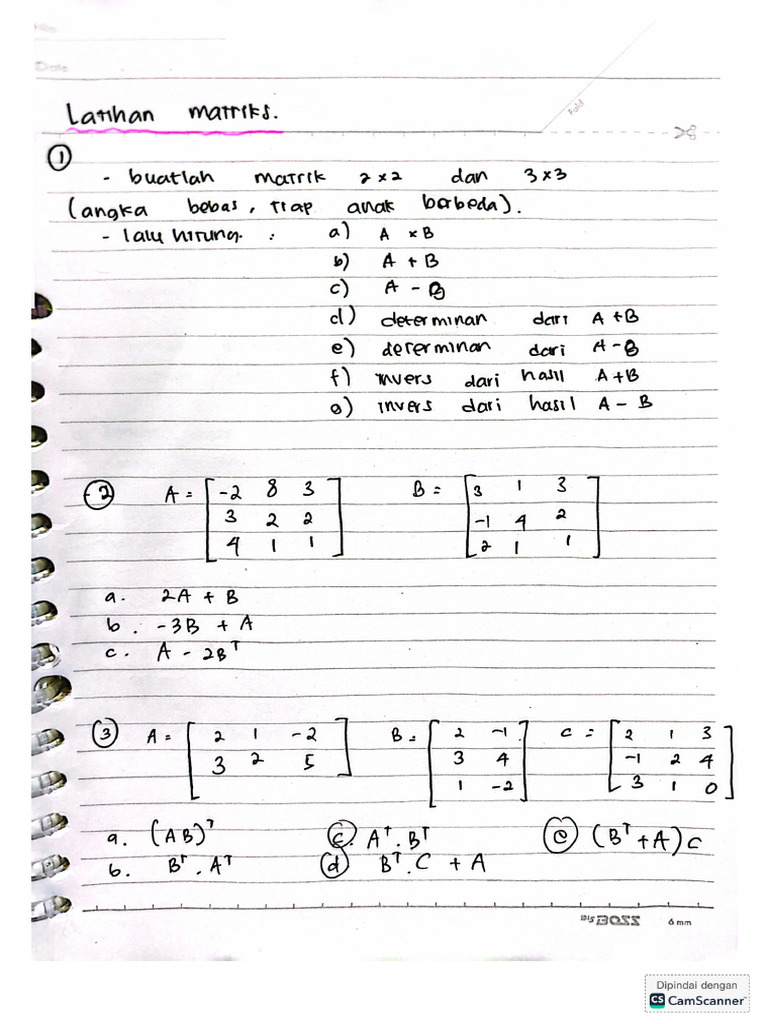 No.
Date
Fold
Latihan matriks.
①
- buatlah matrik 2x2 dan 3x3
(angka bebas, tiap anak berbeda).
- lalu hitung : a) A x B
b) A + B
c) A - B
d) determinan dari A + B
e) determinan dari A - B
f) invers dari hasil A + B
g) invers dari hasil A - B
② A = [-2 8 3 B = [3 1 3
3 2 2 -1 4 2
4 1 1] 2 1 1]
a. 2A + B
b. -3B + A
c. A - 2Bᵀ
③ A = [2 1 -2 B = [2 -1 C = [2 1 3
3 2 5] 3 4 -1 2 4
1 -2] 3 1 0]
a. (AB)ᵀ ⓒ. Aᵀ.Bᵀ ⓔ (Bᵀ + A)C
b. Bᵀ. Aᵀ ⓓ Bᵀ.C + A
Big BOSS 6 mm
Dipindai dengan
CS CamScanner